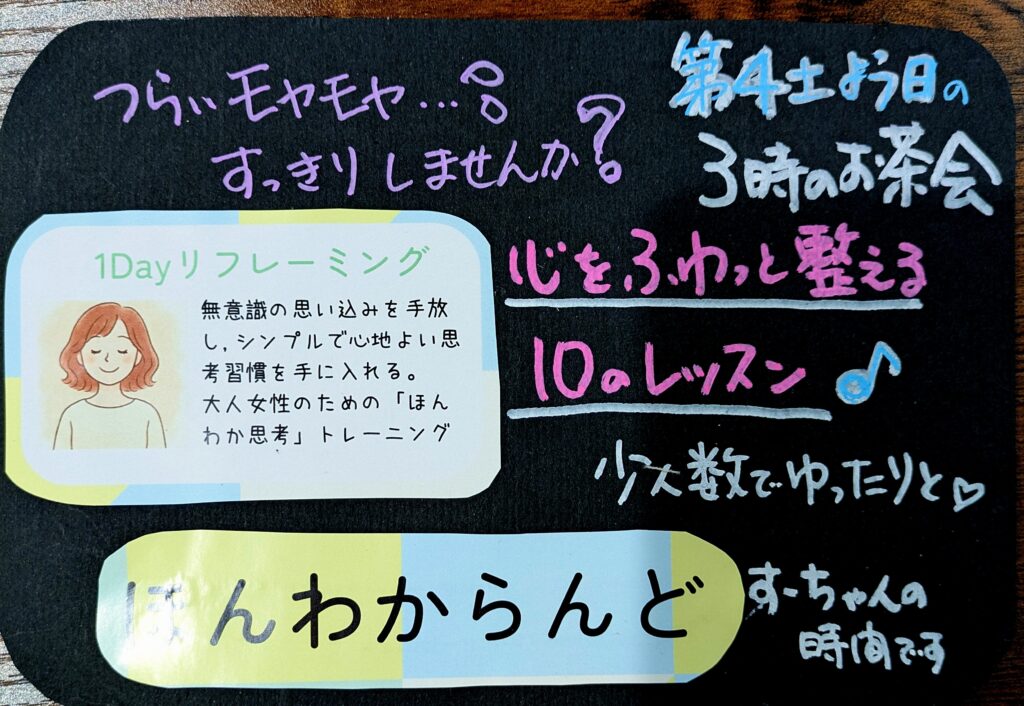 つらぃモヤモヤ…
すっきりしませんか?
第4土よう日の
3時のお茶会
1Dayリフレーミング
無意識の思い込みを手放
し,シンプルで心地よい思
考習慣を手に入れる。
大人女性のための「ほん
わか思考」トレーニング
心をふゎっと整える
10のレッスン♪
少人数でゆったりと♡
ほんわからんど
すーちゃんの
時間です